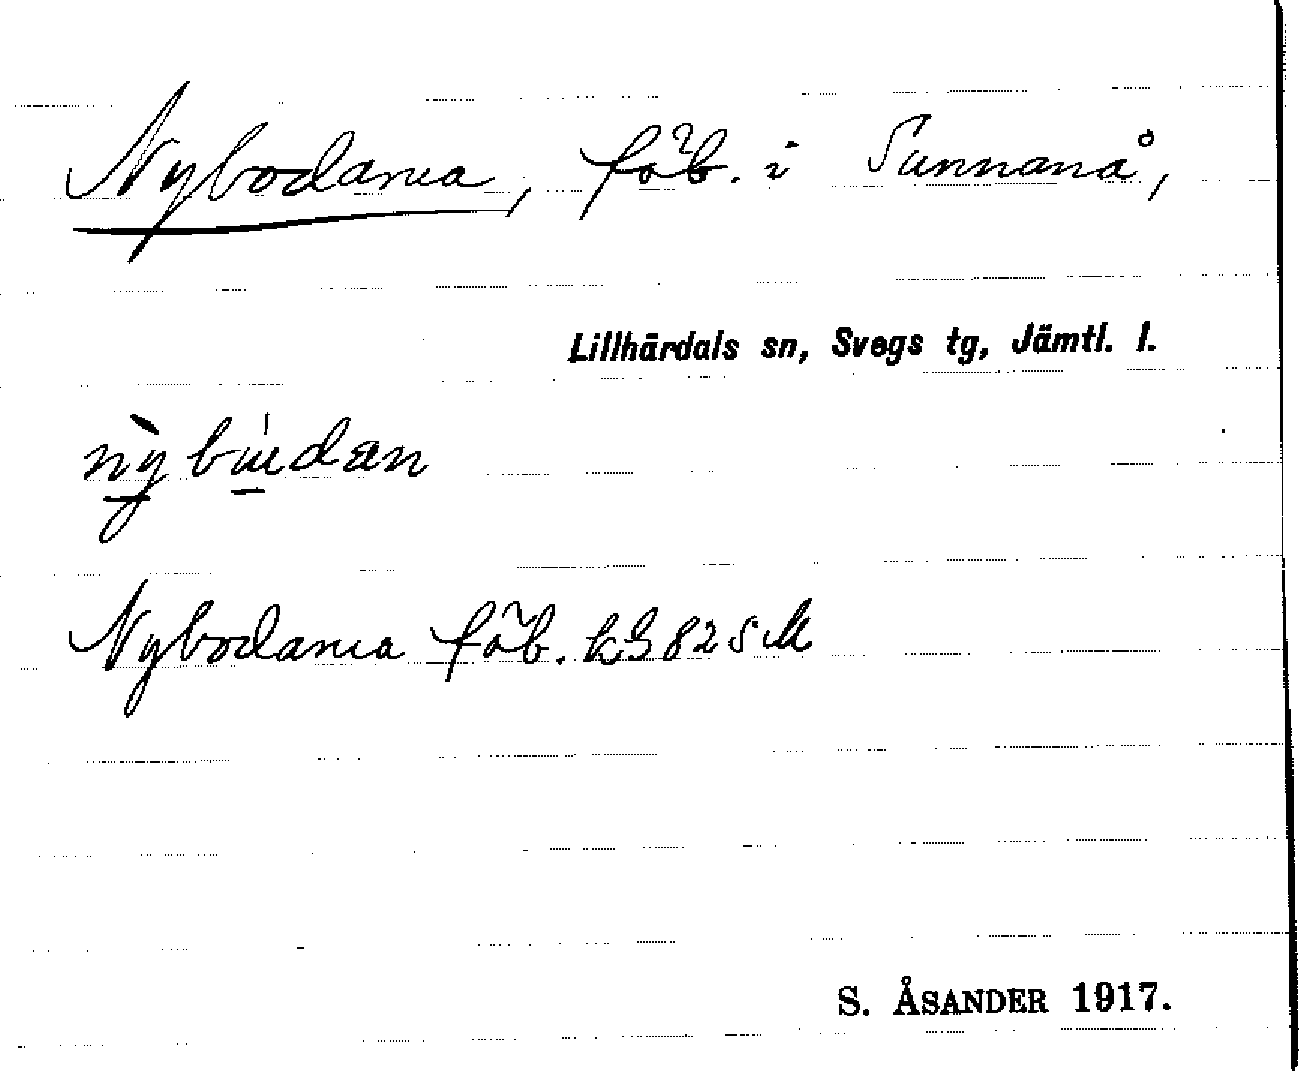 Nybodarna, fäb. i Sunnanå,
Lillhärdals sn, Svegs tg, Jämtl. l.
Nybodarna fäb. kG 825 M
S. ÅSANDER 1917.